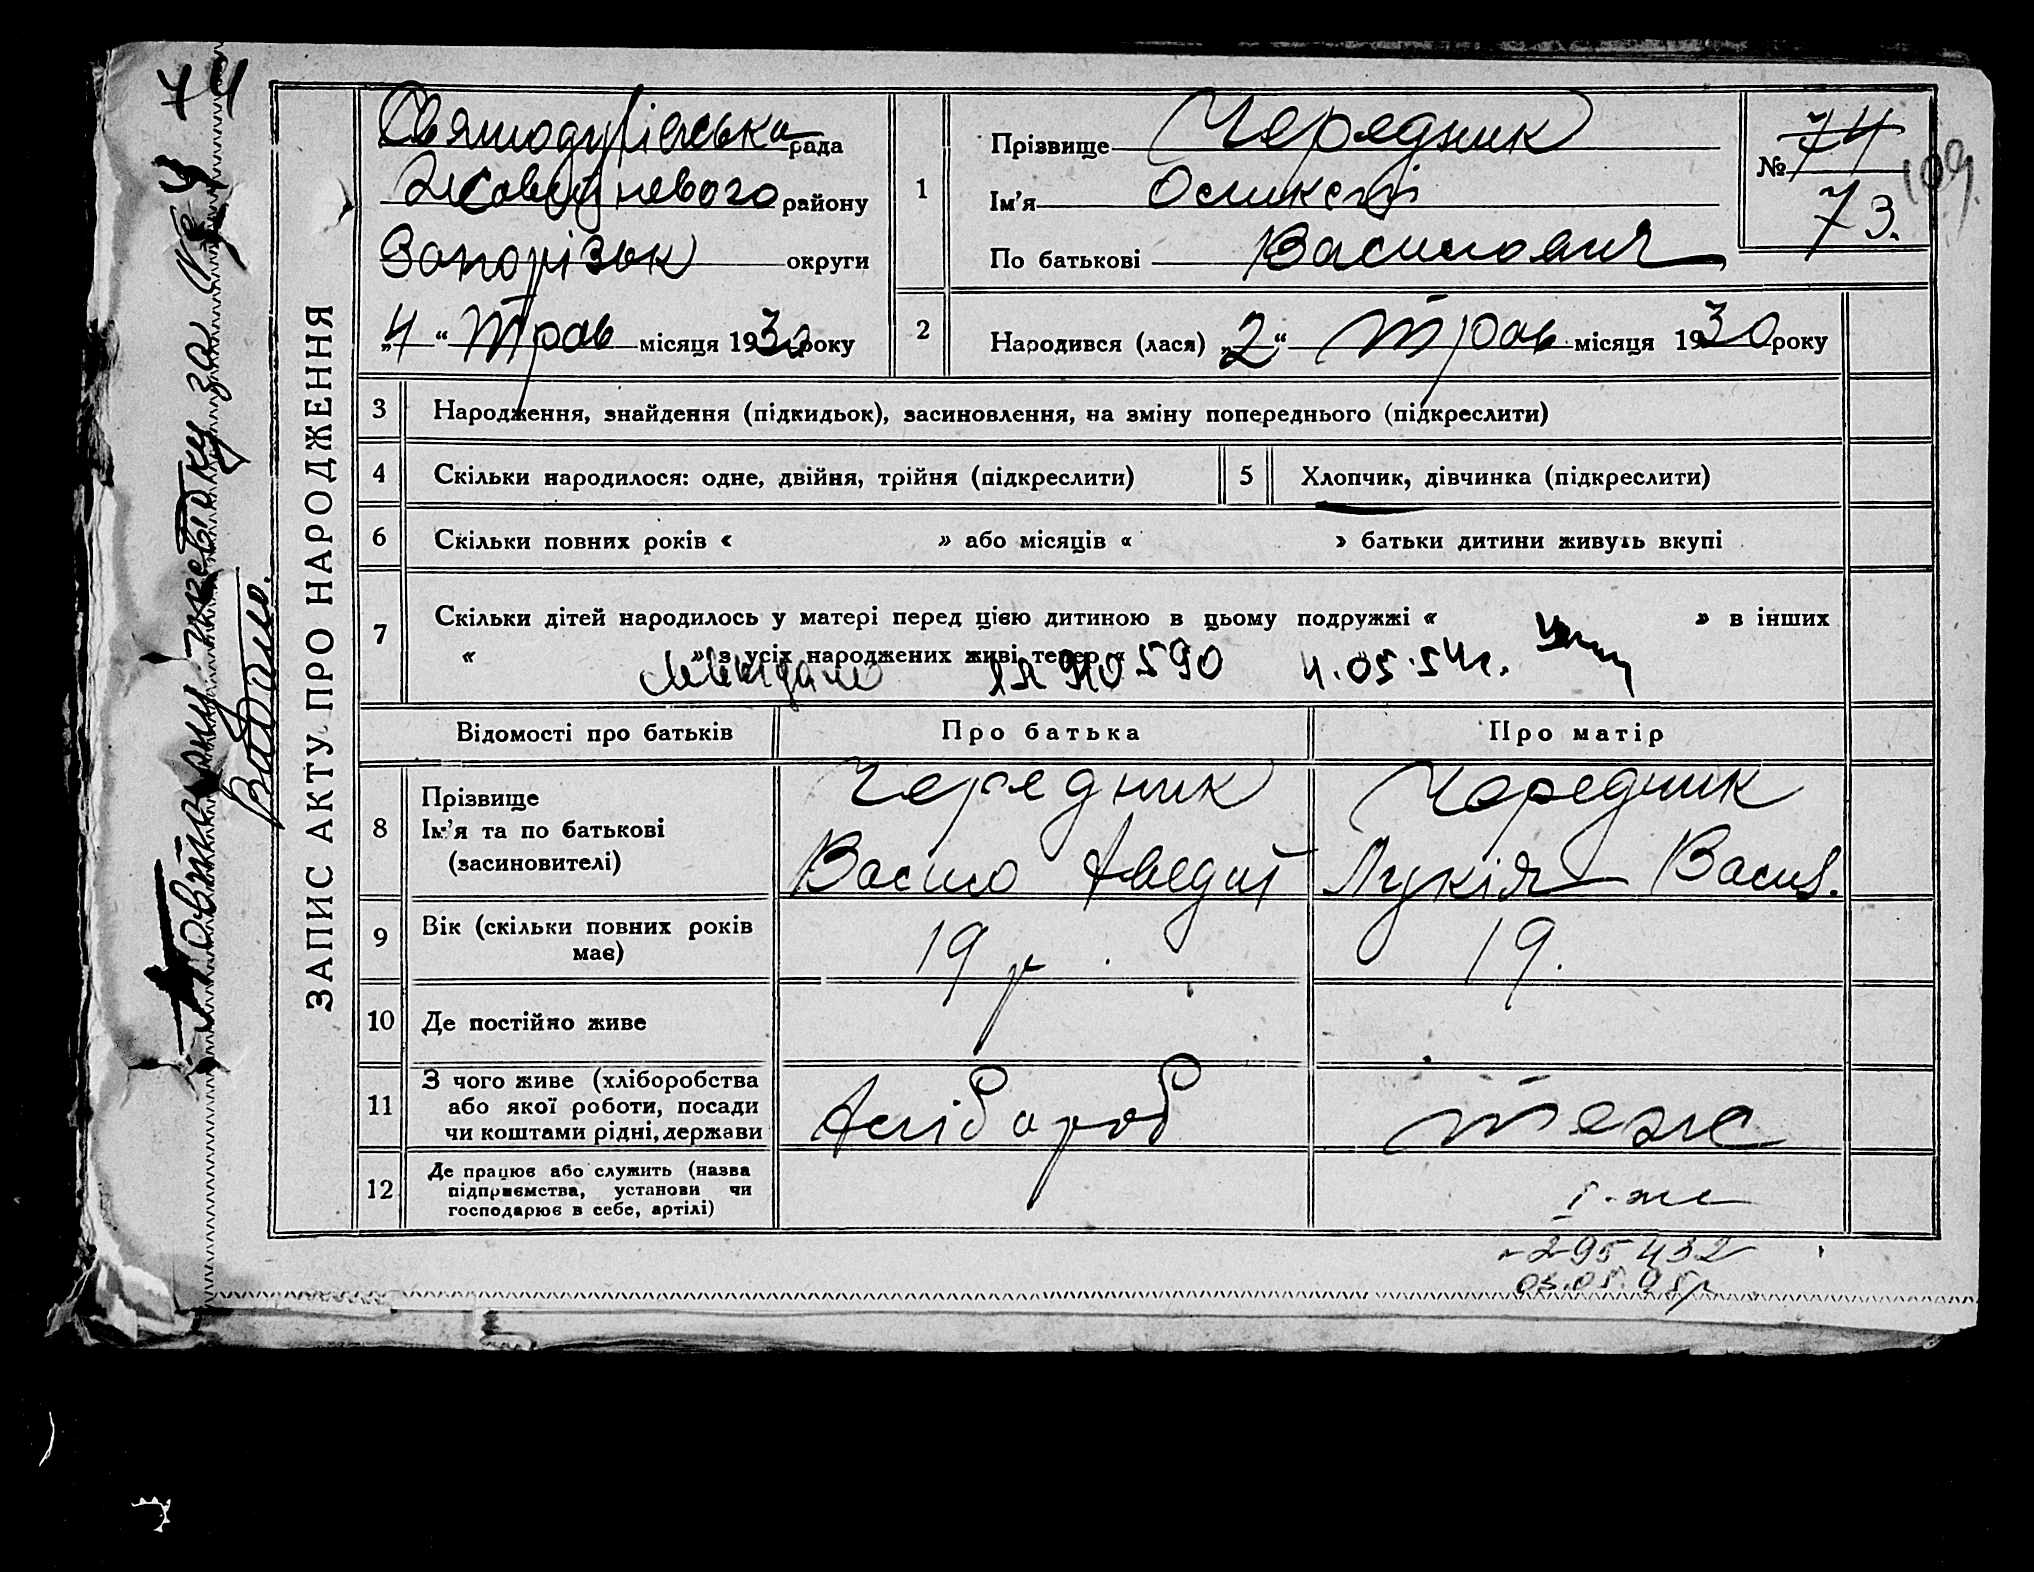 74
ЗАПИС АКТУ ПРО НАРОДЖЕННЯ
рада
району
Запорізьк округи
„4“ Трав місяця 1930 року
1
Прізвище Чередник
Ім'я Оликсій
По батькові Васильович
№ 74
73.
109.
2
Народився (лася) „2“ Трав місяця 1930 року
3
Народження, знайдення (підкидьок), засиновлення, на зміну попереднього (підкреслити)
4
Скільки народилося: одне, двійня, трійня (підкреслити)
5
Хлопчик, дівчинка (підкреслити)
6
Скільки повних років « » або місяців « » батьки дитини живуть вкупі
7
Скільки дітей народилось у матері перед цією дитиною в цьому подружжі « » в інших
« » з усіх народжених живі тепер «
590 4.05.54г.
Відомості про батьків
Про батька
Про матір
8
Прізвище
Ім'я та по батькові
(засиновителі)
Чередник
Васило Аведий
Чередник
Лукія Васил.
9
Вік (скільки повних років
має)
19 р
19.
10
Де постійно живе
11
З чого живе (хліборобства
або якої роботи, посади
чи коштами рідні, держави
хлібороб
теже
12
Де працює або служить (назва
підприємства, установи чи
господарює в себе, артілі)
т-же
295432